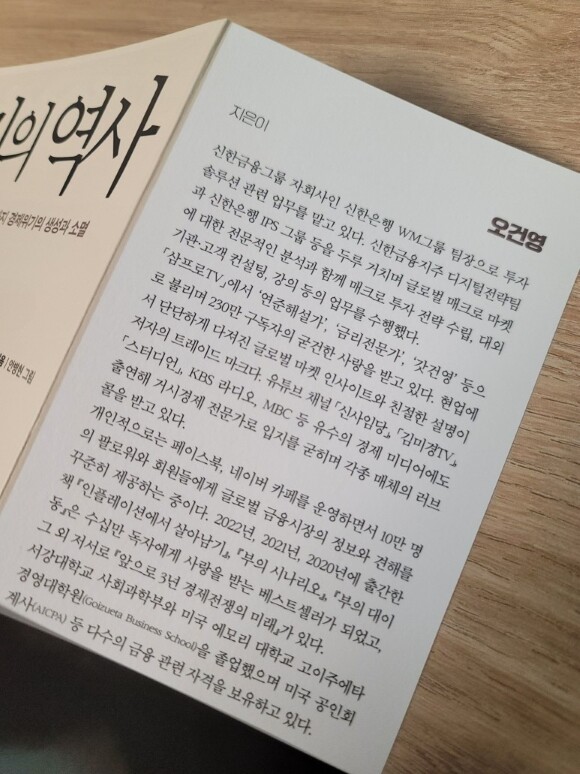 의 역사
경제위기의 생성과 소멸
안병현 그림
지은이
오건영
신한금융그룹 자회사인 신한은행 WM그룹 팀장으로 투자
솔루션 관련 업무를 맡고 있다. 신한금융지주 디지털전략팀
과 신한은행 IPS 그룹 등을 두루 거치며 글로벌 매크로 마켓
에 대한 전문적인 분석과 함께 매크로 투자 전략 수립, 대외
기관·고객 컨설팅, 강의 등의 업무를 수행했다.
「삼프로TV」에서 '연준해설가', '금리전문가', '갓건영' 등으
로 불리며 230만 구독자의 굳건한 사랑을 받고 있다. 현업에
서 단단하게 다져진 글로벌 마켓 인사이트와 친절한 설명이
저자의 트레이드 마크다. 유튜브 채널 「신사임당」, 「김미경TV」
「스터디언」, KBS 라디오, MBC 등 유수의 경제 미디어에도
출연해 거시경제 전문가로 입지를 굳히며 각종 매체의 러브
콜을 받고 있다.
개인적으로는 페이스북, 네이버 카페를 운영하면서 10만 명
의 팔로워와 회원들에게 글로벌 금융시장의 정보와 견해를
꾸준히 제공하는 중이다. 2022년, 2021년, 2020년에 출간한
책 『인플레이션에서 살아남기』, 『부의 시나리오』, 『부의 대이
동』은 수십만 독자에게 사랑을 받는 베스트셀러가 되었고,
그 외 저서로 『앞으로 3년 경제전쟁의 미래』가 있다.
서강대학교 사회과학부와 미국 에모리 대학교 고이주에타
경영대학원(Goizueta Business School)을 졸업했으며 미국 공인회
계사(AICPA) 등 다수의 금융 관련 자격을 보유하고 있다.